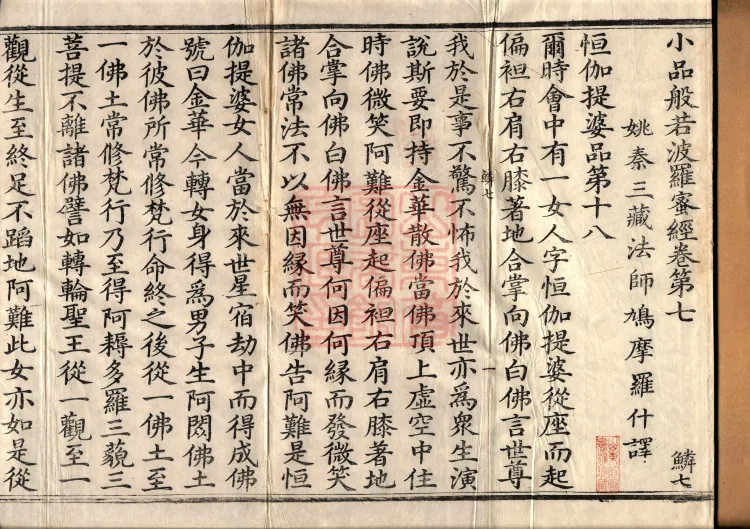 小品般若波羅蜜經卷第七
鱗七
姚秦三藏法師鳩摩羅什譯
恒伽提婆品第十八
爾時會中有一女人字恒伽提婆從座而起
偏袒右肩右膝著地合掌向佛白佛言世尊
鱗七
一
我於是事不驚不怖我於來世亦爲衆生演
說斯要即持金華散佛當佛頂上虛空中住
時佛微笑阿難從座起偏袒右肩右膝著地
合掌向佛白佛言世尊何因何緣而發微笑
諸佛常法不以無因緣而笑佛告阿難是恒
伽提婆女人當於來世星宿劫中而得成佛
號曰金華今轉女身得爲男子生阿閦佛土
於彼佛所常修梵行命終之後從一佛土至
一佛土常修梵行乃至得阿耨多羅三藐三
菩提不離諸佛譬如轉輪聖王從一觀至一
觀從生至終足不蹈地阿難此女亦如是從